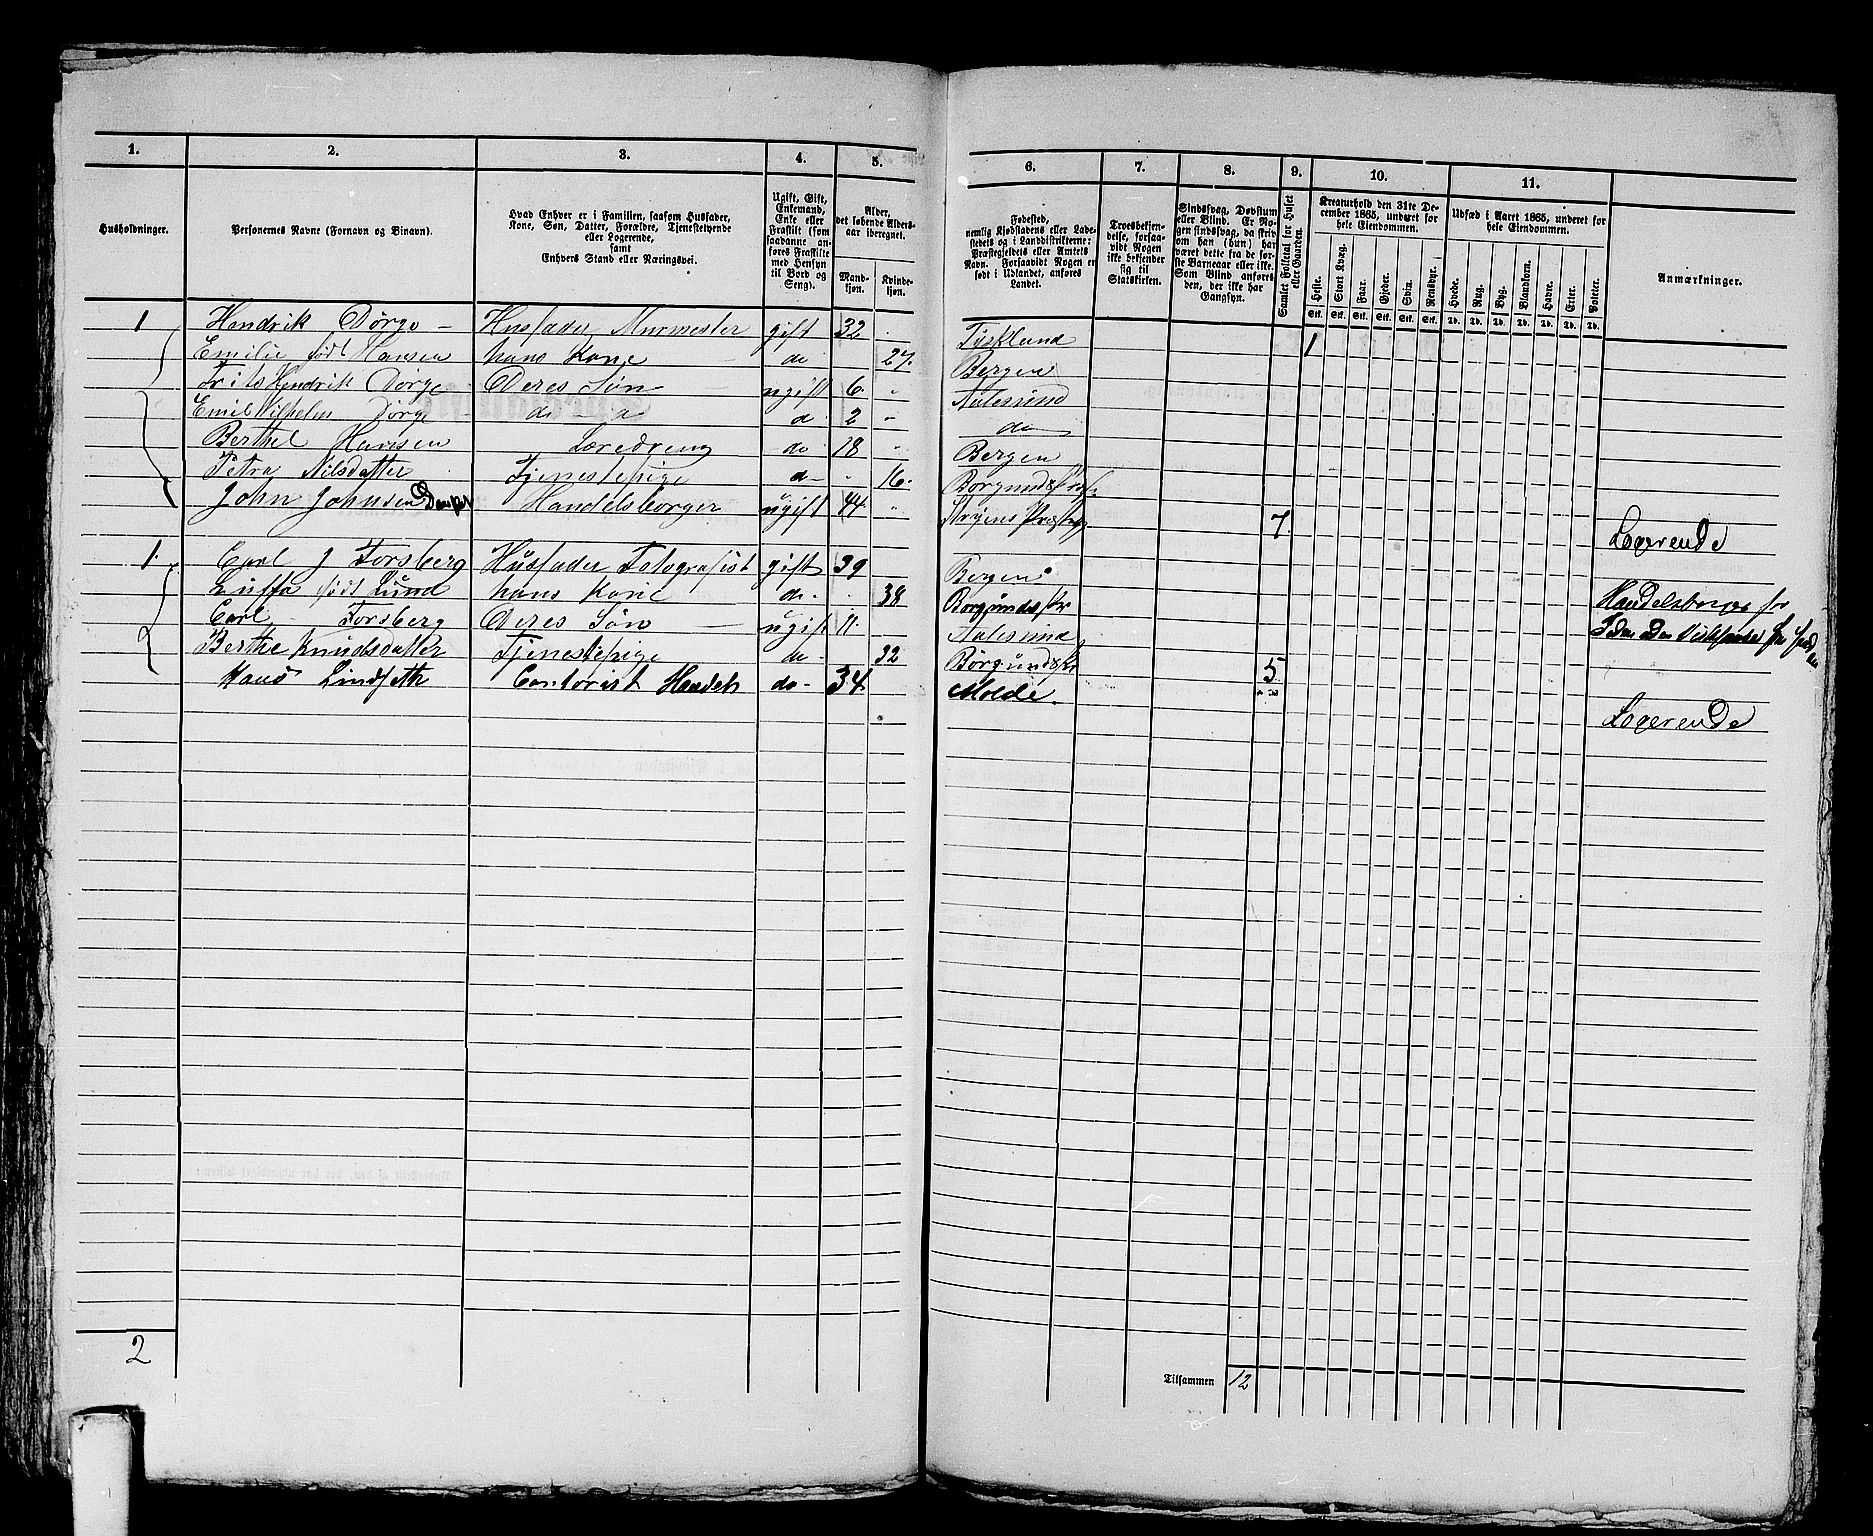 1. 2. 3. 4. 5. 6. 7. 8. 9. 10. 11.
Husholdninger.
Personernes Navne (Fornavn og Binavn).
Hvad Enhver er i Familien, saasom Husfader,
Kone, Søn, Datter, Forældre, Tjenestetyende
eller Logerende,
samt
Enhvers Stand eller Næringsvei.
Ugift, Gift,
Enkemand,
Enke eller
Fraskilt (som
saadanne an-
føres Fraskilte
med Hensyn
til Bord og
Seng).
Alder,
det løbende Alders-
aar iberegnet.
Mand-
kjøn.
Kvinde-
kjøn.
Fødested,
nemlig Kjøbstadens eller Lade-
stedets og i Landdistrikterne:
Præstegjeldets eller Amtets
Navn. Forsaavidt Nogen er
født i Udlandet, anføres
Landet.
Troesbekjen-
delse, forsaa-
vidt Nogen
ikke bekjender
sig til
Statskirken.
Sindssvag, Døvstum
eller Blind. Er No-
gen sindssvag, da skriv
om han (hun) har
været dette fra de før-
ste Barneaar eller ikke.
Som Blind anføres
den, der ikke har
Gangsyn.
Samlet Folketal for Huset
eller Gaarden.
Kreaturhold den 31te De-
cember 1865, underet for
hele Eiendommen.
Heste. Stort Kvæg. Faar. Gjeder. Svin. Rensdyr.
Stk. Stk. Stk. Stk. Stk. Stk.
Udsæd i Aaret 1865, underet for
hele Eiendommen.
Hvede. Rug. Byg. Blandkorn. Havre. Erter. Poteter.
Td. Td. Td. Td. Td. Td. Td.
Anmærkninger.
1 Hendrik Dørge Husfader Murmester gift 32 Tyskland 1
Emilie født Hansen hans Kone do 27. Bergen
Frits Hendrik Dørge Deres Søn ugift 6 Aalesund
Emil Vilhelm Dørge d 2 do
Berthel Hansen Læredreng do 18 Bergen
Petra Nilsdatter Tjenestepige d 16
John Johnsen Handelsborger ugift 44 7. Logerende
1. Carl J Forsberg Husfader Fotografist gift 39 Bergen
født Lund hans Kone do 38 Borgunds pr Handelsborger for
Carl Forsberg Deres Søn ugift 11. Aalesund
Berthe Knudsdatter Tjenestepige do 32 5
Hans Lindseth Contorist do 34 Molde. Logerende
2
Tilsammen 12